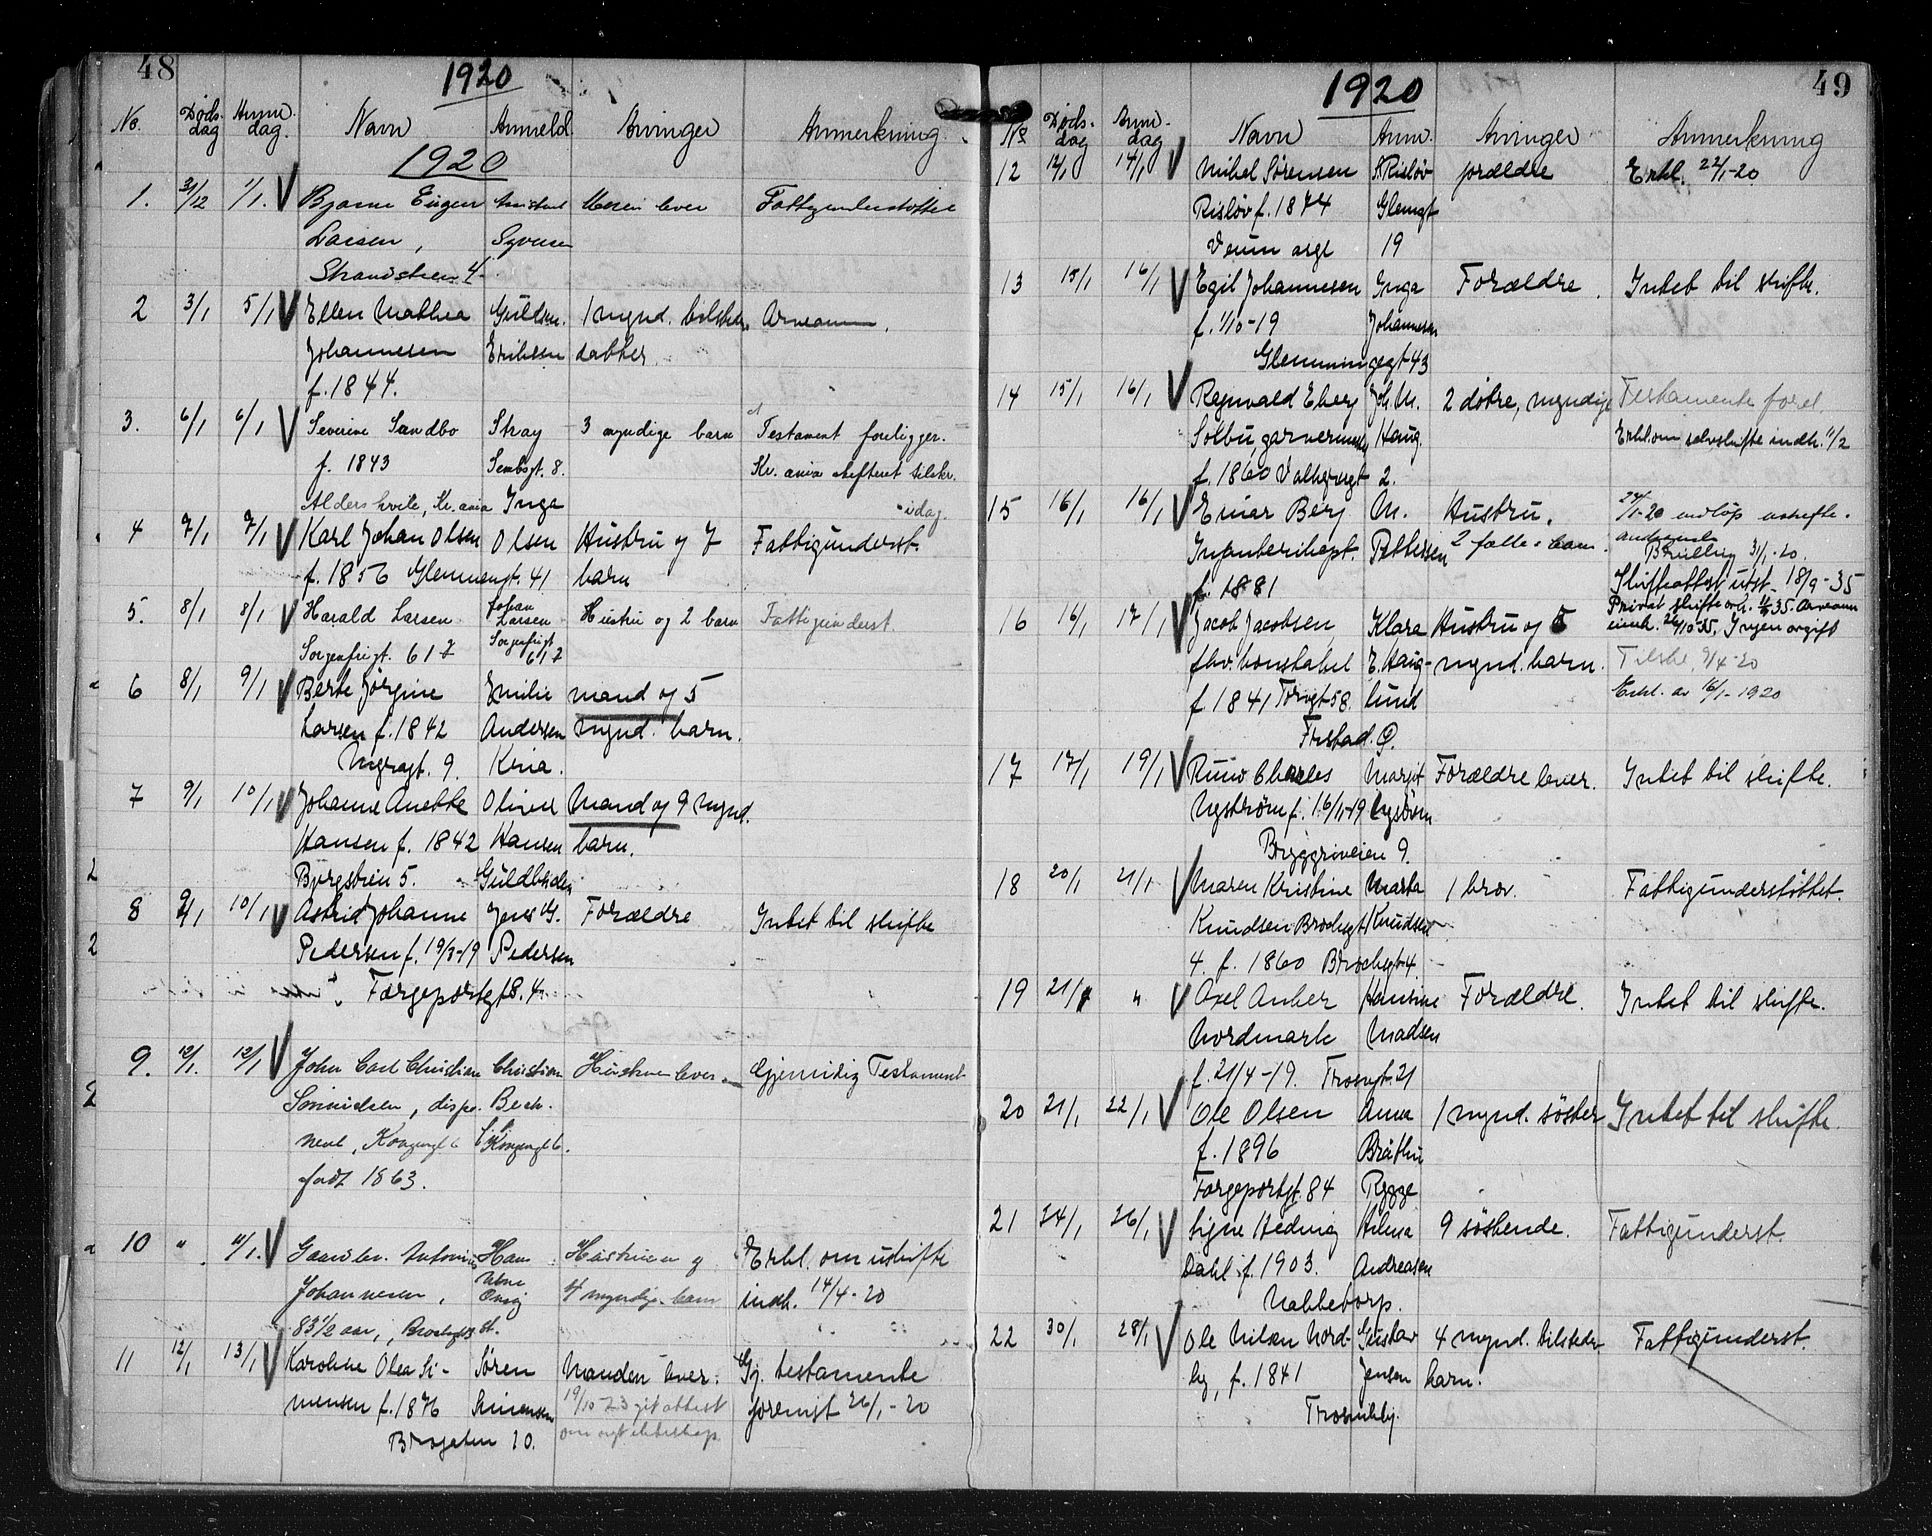 48
1920
No. Døds- dag Anm. dag. Navn Anmeld. Arvinger Anmerkning
1920
1. 31/12 1/1. Bjarne Eugen Moren lever Fattigunderstøttet
Larsen, Syversen
Strandstien 4
2 3/1 5/1 Ellen Mathea Guldbr. 1 mynd. tilstede. Arveanm.
Johannesen Eriksen datter.
f. 1844.
3. 6/1 6/1 Severine Sandbo Stray 3 myndige barn Testament foreligger.
f. 1843 Sembsgt. 8. Kr.ania skifteret tilskr.
Aldershvile, Kr.ania Inga idag.
4 7/1 7/1 Karl Johan Olsen Olsen Hustru og 7 Fattigunderst.
f. 1856 Glemmengt. 41 barn
5. 8/1 8/1 Harald Larsen Johan Larsen Hustru og 2 barn Fattigunderst.
Sorgenfrigt. 617 Sorgenfrigt. 617
6 8/1 9/1 Berte Jørgine Emilie mand og 5
Larsen f. 1842 Andersen mynd. barn.
9. Kria.
7 9/1 10/1 Johanne Anette Oliver Mand og 9 mynd.
Hansen f. 1842 Hansen barn.
Borgstien 5.
8 9/1 10/1 Astrid Johanne Jens G. Forældre Intet til skifte
Pedersen f. 19/3-19 Pedersen
Færgeportgt 8. 4.
9. 12/1. 12/1 John Carl Christian Christian Hustruen lever Gjensidig Testament
dispo- Bech.
nent, Kongensgt 6 Kongensgt 6.
født 1863.
10 " 11/1. Gaardbr. Antonius Hans Hustruen og Erkl. om utskifte
Johannesen, 4 myndige barn indk. 14/4-20
83 1/2 aar,
11 12/1 13/1 Karoline Olea Si- Søren Manden lever. Gj. testamente
mensen f. 1876 Simensen 19/10 23 git attest forevist 26/1-20
Brogaten 20. om
49
1920
No Døds- dag Anm- dag Navn Anm. Arvinger Anmerkning
12 12/1 14/1 Mikal Sørensen A. Risløv forældre Erkl. 22/1-20
Risløv f. 1874 Glemgt
Verum asyl 19
13 15/1 16/1 Egil Johannesen Inga Forældre. Intet til skifte.
f. 1/10-19 Johannesen
Glemmingegt 43
14 15/1 16/1 Regnvald Eberg Joh. M. 2 døtre, myndige Testamente forel.
Solbu, garvermester Haug. Erkl. om selvskifte indk. 11/2
f. 1860 Valhegregt 2.
15 16/1 16/1 Einar Berg M. Hustru. 24/1-20 utskifte.
Infanterikapt. Pettersen 2 fælles barn.
f. 1881 Bevilling 31/1-20.
Skifteattest utst. 18/9-35
Privat skifte avh. Arveanm
innk. 26/10-35, Ingen avgift
16 16/1 17/1 Jacob Jacobsen Klara Hustru og 5
fhv. konstabel E. Haug- mynd. barn. 9/4-20
f 1841 Torvgt 58. lund Erkl. av 16/1-1920
Frstad. Ø.
17 17/1 19/1 Runo Charles Margit Forældre lever. Intet til skifte.
Nystrøm f. 16/11-19 Nystrøm
Bryggriveien 9.
18 20/1 21/1 Maren Kristine Marta 1 bror. Fattigunderstøttet.
Knudsen Brochsgt Knudsen
4. f. 1860 Brochsgt 4.
19 21/1 " Axel Anker Hansine Forældre. Intet til skifte.
Nordmark Madsen
f. 21/4-19. Trosvgt. 21
20 21/1 22/1 Ole Olsen Anna 1 mynd. søster Intet til skifte.
f. 1896 Bråthu
Færgeportgt. 84 Rygge
21 24/1 26/1 Signe Hedvig Helma 9 søskende. Fattigunderst.
Dahl f. 1903. Andreasen
Nabbetorp.
22 30/1 28/1 Ole Nilsen Nord- Gustav 4 mynd. tilstede. Fattigunderst.
by, f. 1841 Jensen barn.
Trosvikbj.